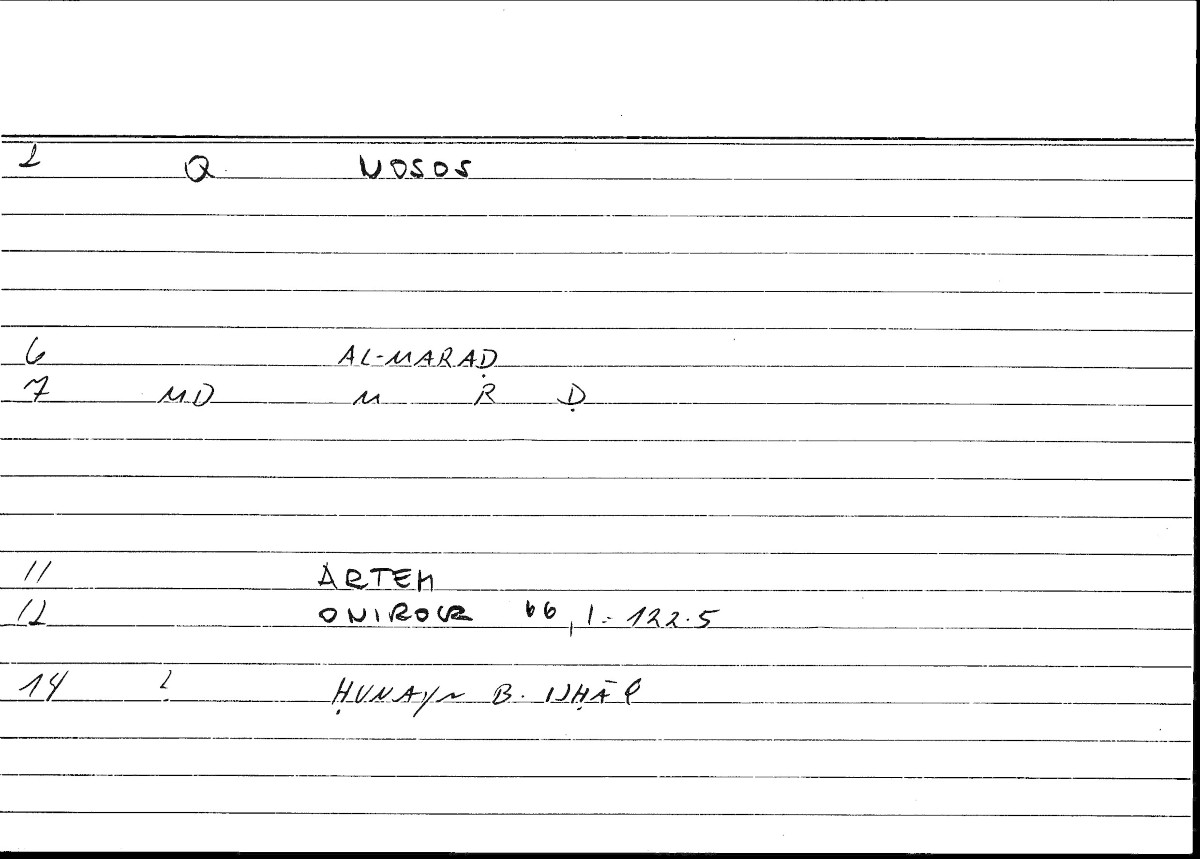 2 Q NOSOS
6 AL-MARAḌ
7 MD M R Ḍ
11 ARTEM
12 ONIROCR 66,1-122.5
14 ? ḤUNAYN B. ISḤĀQ